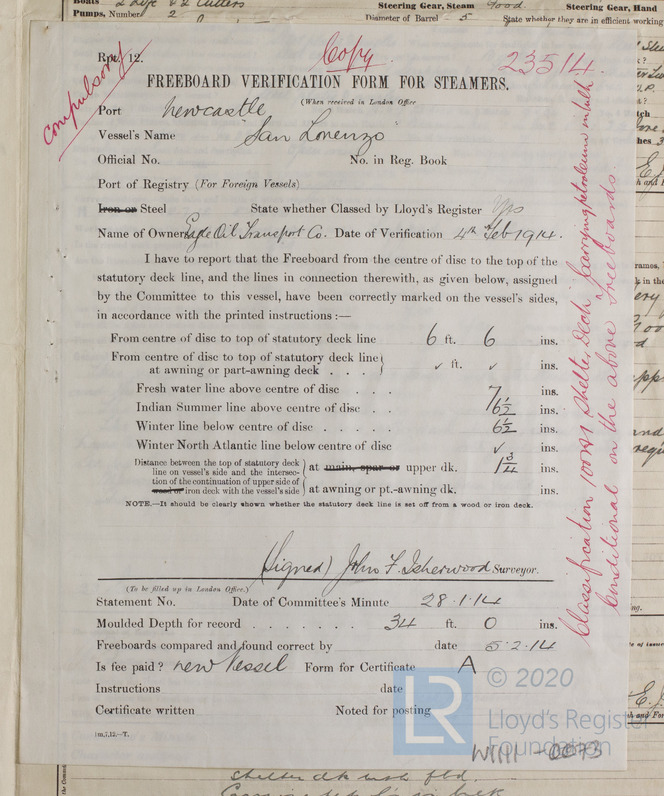 Boats 2 Life & 2 Cutters Steering Gear, Steam Good. Steering Gear, Hand
Pumps, Number 2 Diameter of Barrel 5 State whether they are in efficient working
Rpt. 12. Copy 23514.
Compulsory
FREEBOARD VERIFICATION FORM FOR STEAMERS.
(When received in London Office
Port Newcastle
Vessel's Name "San Lorenzo"
Official No. No. in Reg. Book
Port of Registry (For Foreign Vessels)
Iron or Steel State whether Classed by Lloyd's Register Yes
Name of Owner Eagle Oil Transport Co. Date of Verification 4th Feb 1914.
I have to report that the Freeboard from the centre of disc to the top of the
statutory deck line, and the lines in connection therewith, as given below, assigned
by the Committee to this vessel, have been correctly marked on the vessel's sides,
in accordance with the printed instructions :—
From centre of disc to top of statutory deck line 6 ft. 6 ins.
From centre of disc to top of statutory deck line
at awning or part-awning deck . . . ✓ ft. ✓ ins.
Fresh water line above centre of disc . . . 7 ins.
Indian Summer line above centre of disc . . 6½ ins.
Winter line below centre of disc . . . . . 6½ ins.
Winter North Atlantic line below centre of disc ✓ ins.
Distance between the top of statutory deck
line on vessel's side and the intersec-
tion of the continuation of upper side of
wood or iron deck with the vessel's side
at main, spar or upper dk. 1¾ ins.
at awning or pt.-awning dk. ins.
NOTE.—It should be clearly shown whether the statutory deck line is set off from a wood or iron deck.
(Signed) John F. Isherwood Surveyor.
(To be filled up in London Office.)
Statement No. Date of Committee's Minute 28.1.14
Moulded Depth for record . . . . . . . 34 ft. 0 ins.
Freeboards compared and found correct by date 5.2.14
Is fee paid? New Vessel Form for Certificate A
Instructions date
Certificate written Noted for posting
1m,7,12.—T.
Classification 100A1 Shelter Deck "Carrying petroleum in bulk"
Conditional on the above freeboards.
LR © 2020
Lloyd's Register
Foundation
W1111-0073
shelter dk with fbd.
Carrying pet. in bulk